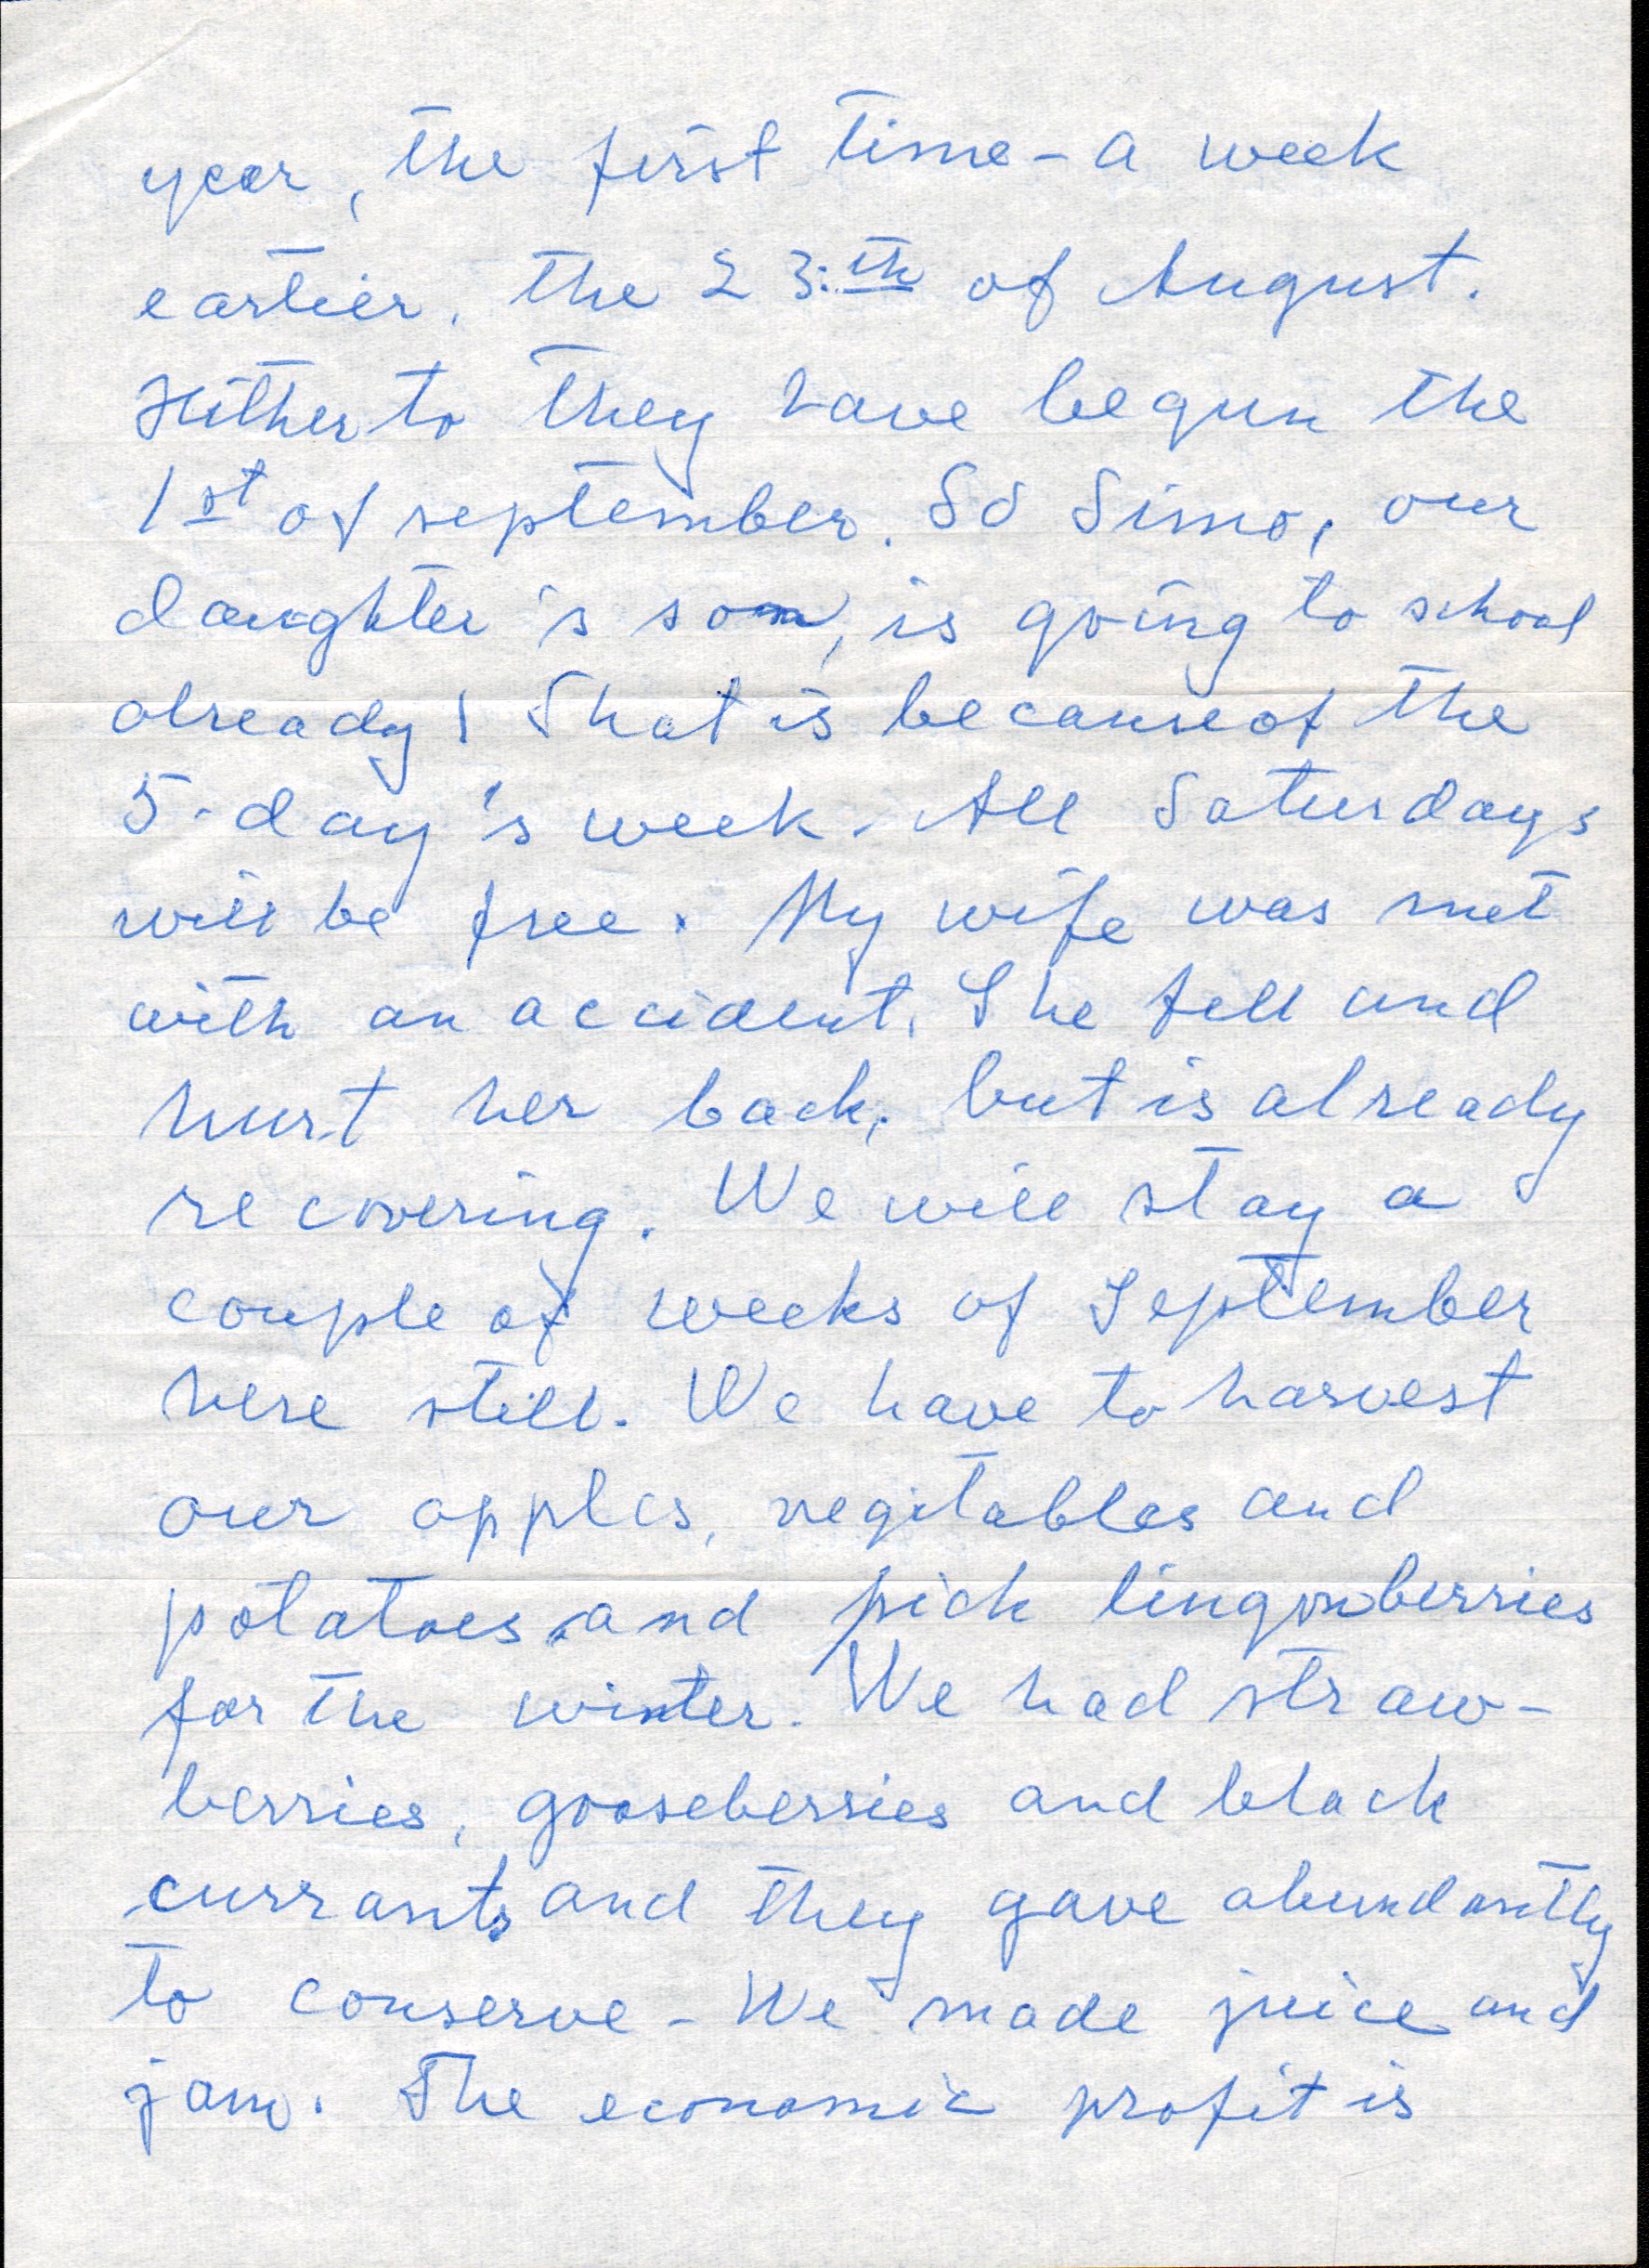 year, the first time - a week
earlier, the 23:th of August.
Hitherto they have begun the
1st of september. So Simo, our
daughter's son, is going to school
already! That is because of the
5-day's week. All Saturdays
will be free. My wife was met
with an accident. She fell and
hurt her back, but is already
recovering. We will stay a
couple of weeks of September
here still. We have to harvest
our apples, vegitables and
potatoes and pick lingonberries
for the winter. We had straw-
berries, gooseberries and black
currants and they gave abundantly
to conserve - We made juice and
jam. The economic profit is